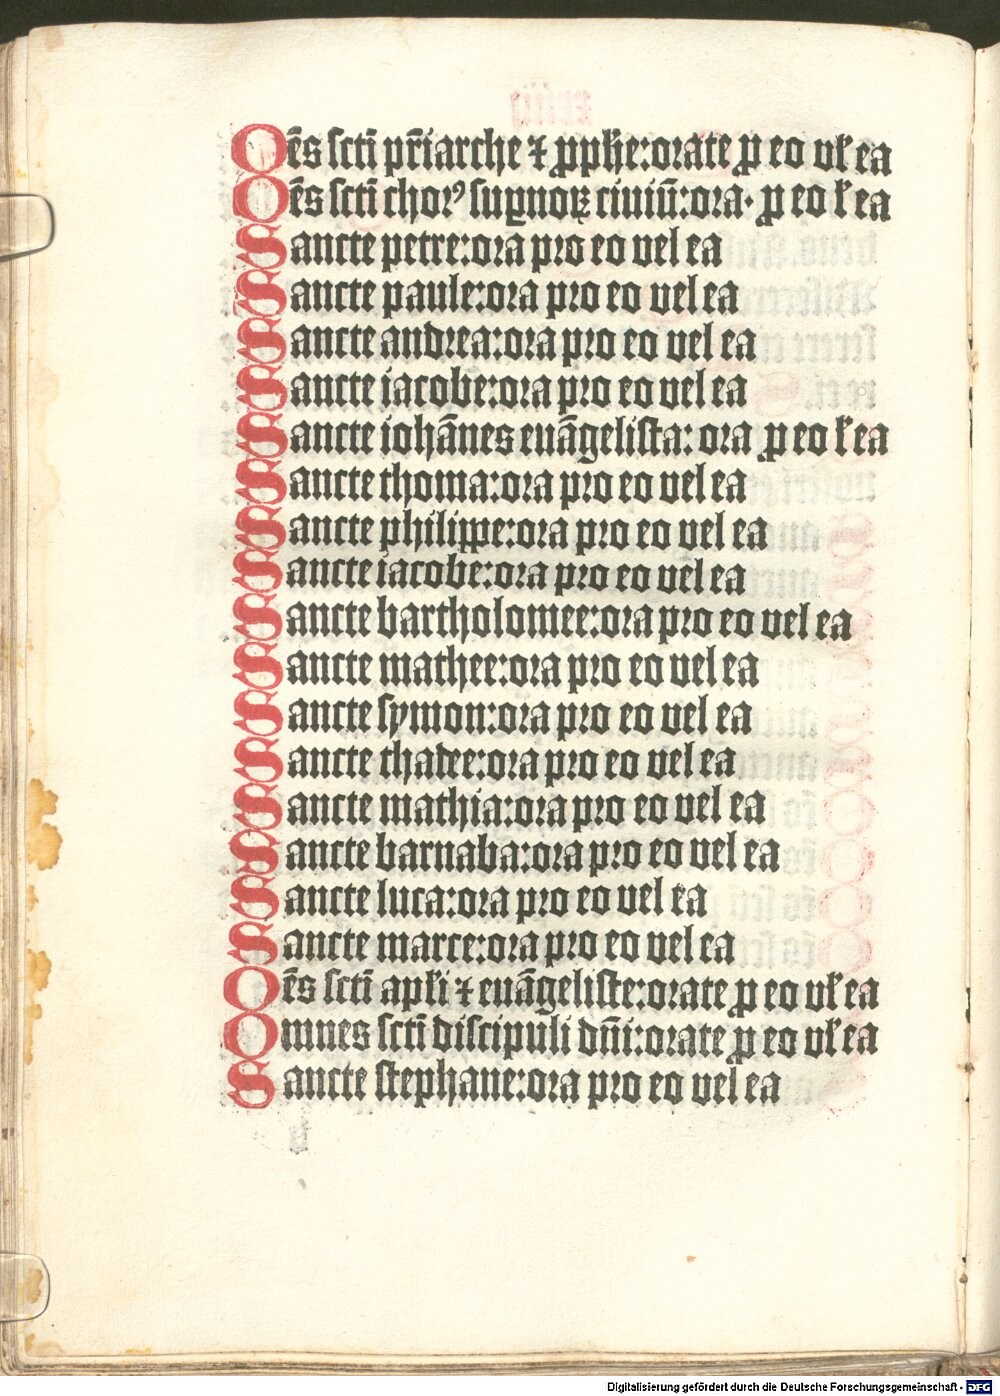 Oēs sctī pr̄iarche ⁊ ꝓph̄e:orate ꝓ eo vl̄ ea
Oēs sctī chorꝰ suꝑnoꝝ ciuiū:ora· ꝓ eo l̄ ea
Sancte petre:ora pro eo vel ea
Sancte paule:ora pro eo vel ea
Sancte andrea:ora pro eo vel ea
Sancte iacobe:ora pro eo vel ea
Sancte iohānes euāgelista: ora ꝓ eo l̄ ea
Sancte thoma:ora pro eo vel ea
Sancte philippe:ora pro eo vel ea
Sancte iacobe:ora pro eo vel ea
Sancte bartholomee:ora pro eo vel ea
Sancte mathee:ora pro eo vel ea
Sancte symon:ora pro eo vel ea
Sancte thadee:ora pro eo vel ea
Sancte mathia:ora pro eo vel ea
Sancte barnaba:ora pro eo vel ea
Sancte luca:ora pro eo vel ea
Sancte marce:ora pro eo vel ea
Oēs sctī apl̄i ⁊ euāgeliste:orate ꝓ eo vl̄ ea
Omnes sctī discipuli dn̄i:orate ꝓ eo vl̄ ea
Sancte stephane:ora pro eo vel ea
Digitalisierung gefördert durch die Deutsche Forschungsgemeinschaft - DFG